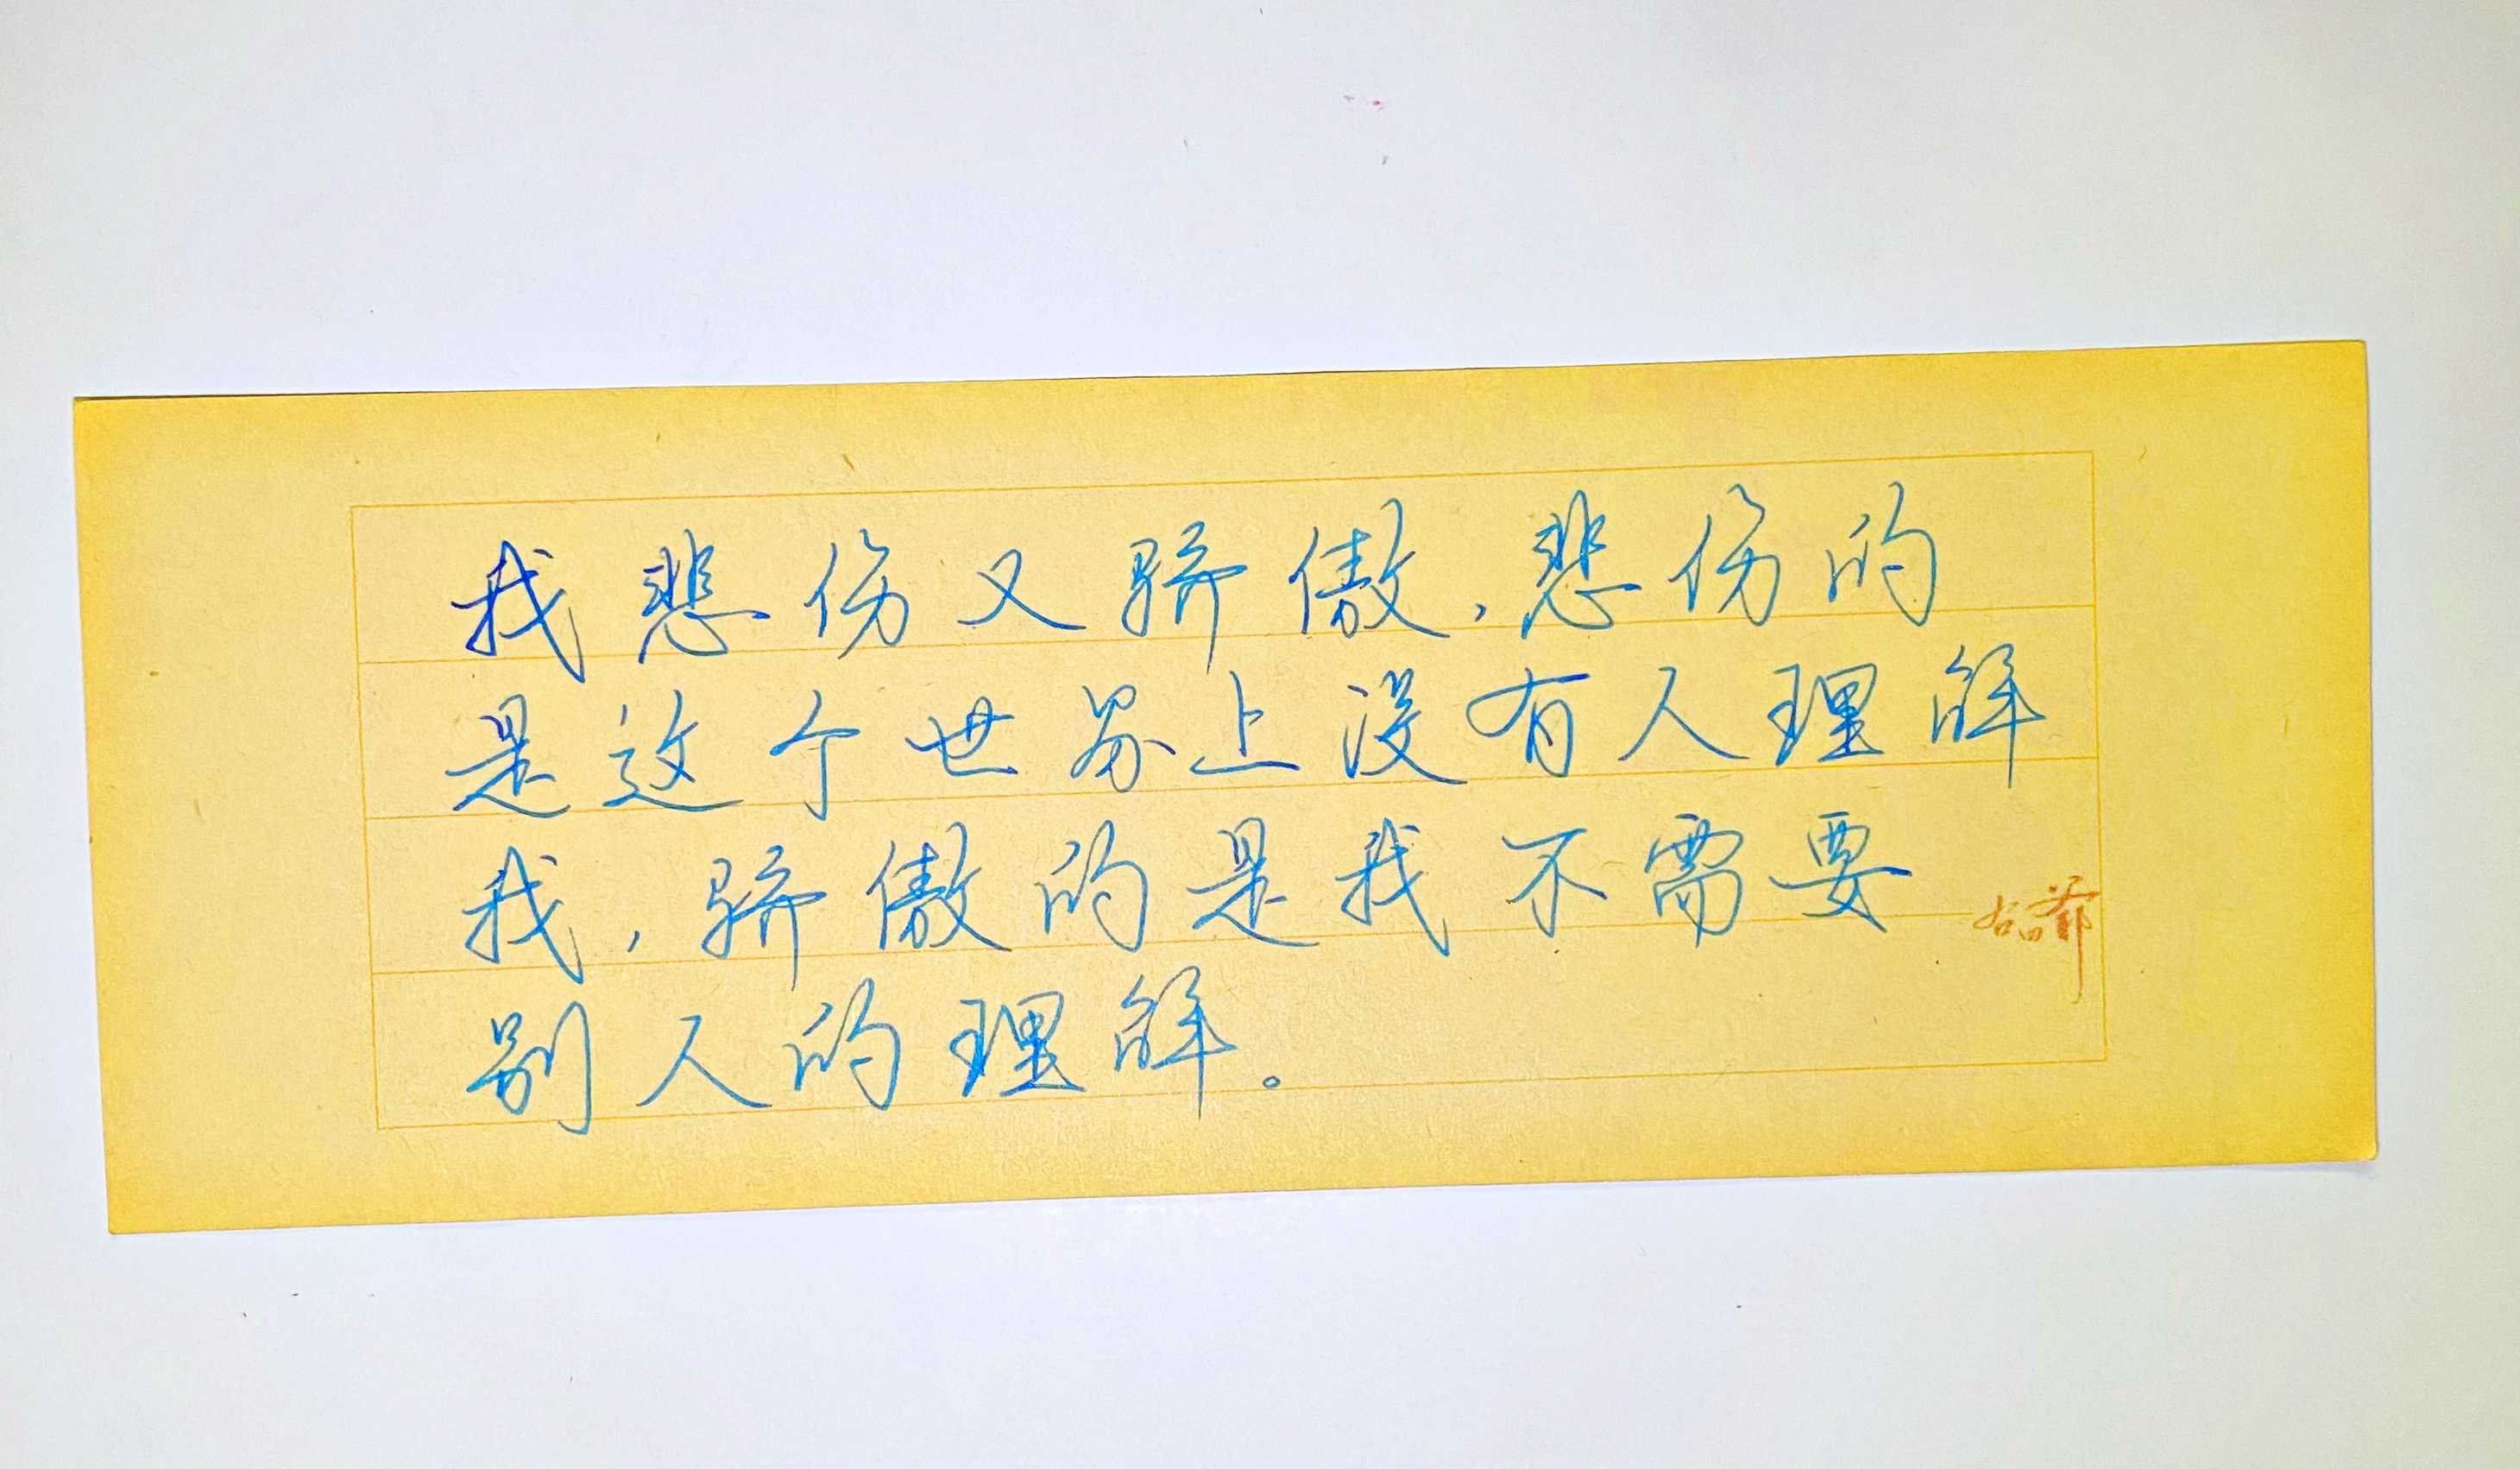 我悲伤又骄傲,悲伤的
是这个世界上没有人理解
我,骄傲的是我不需要
别人的理解。